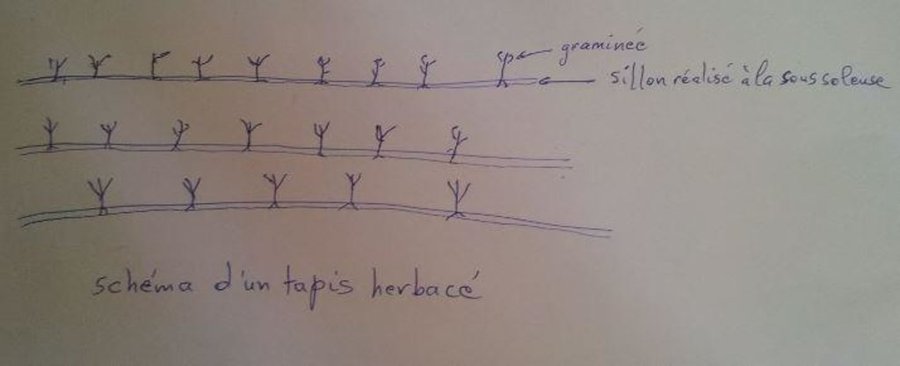 graminée
sillon réalisé à la sous soleuse
schéma d'un tapis herbacé